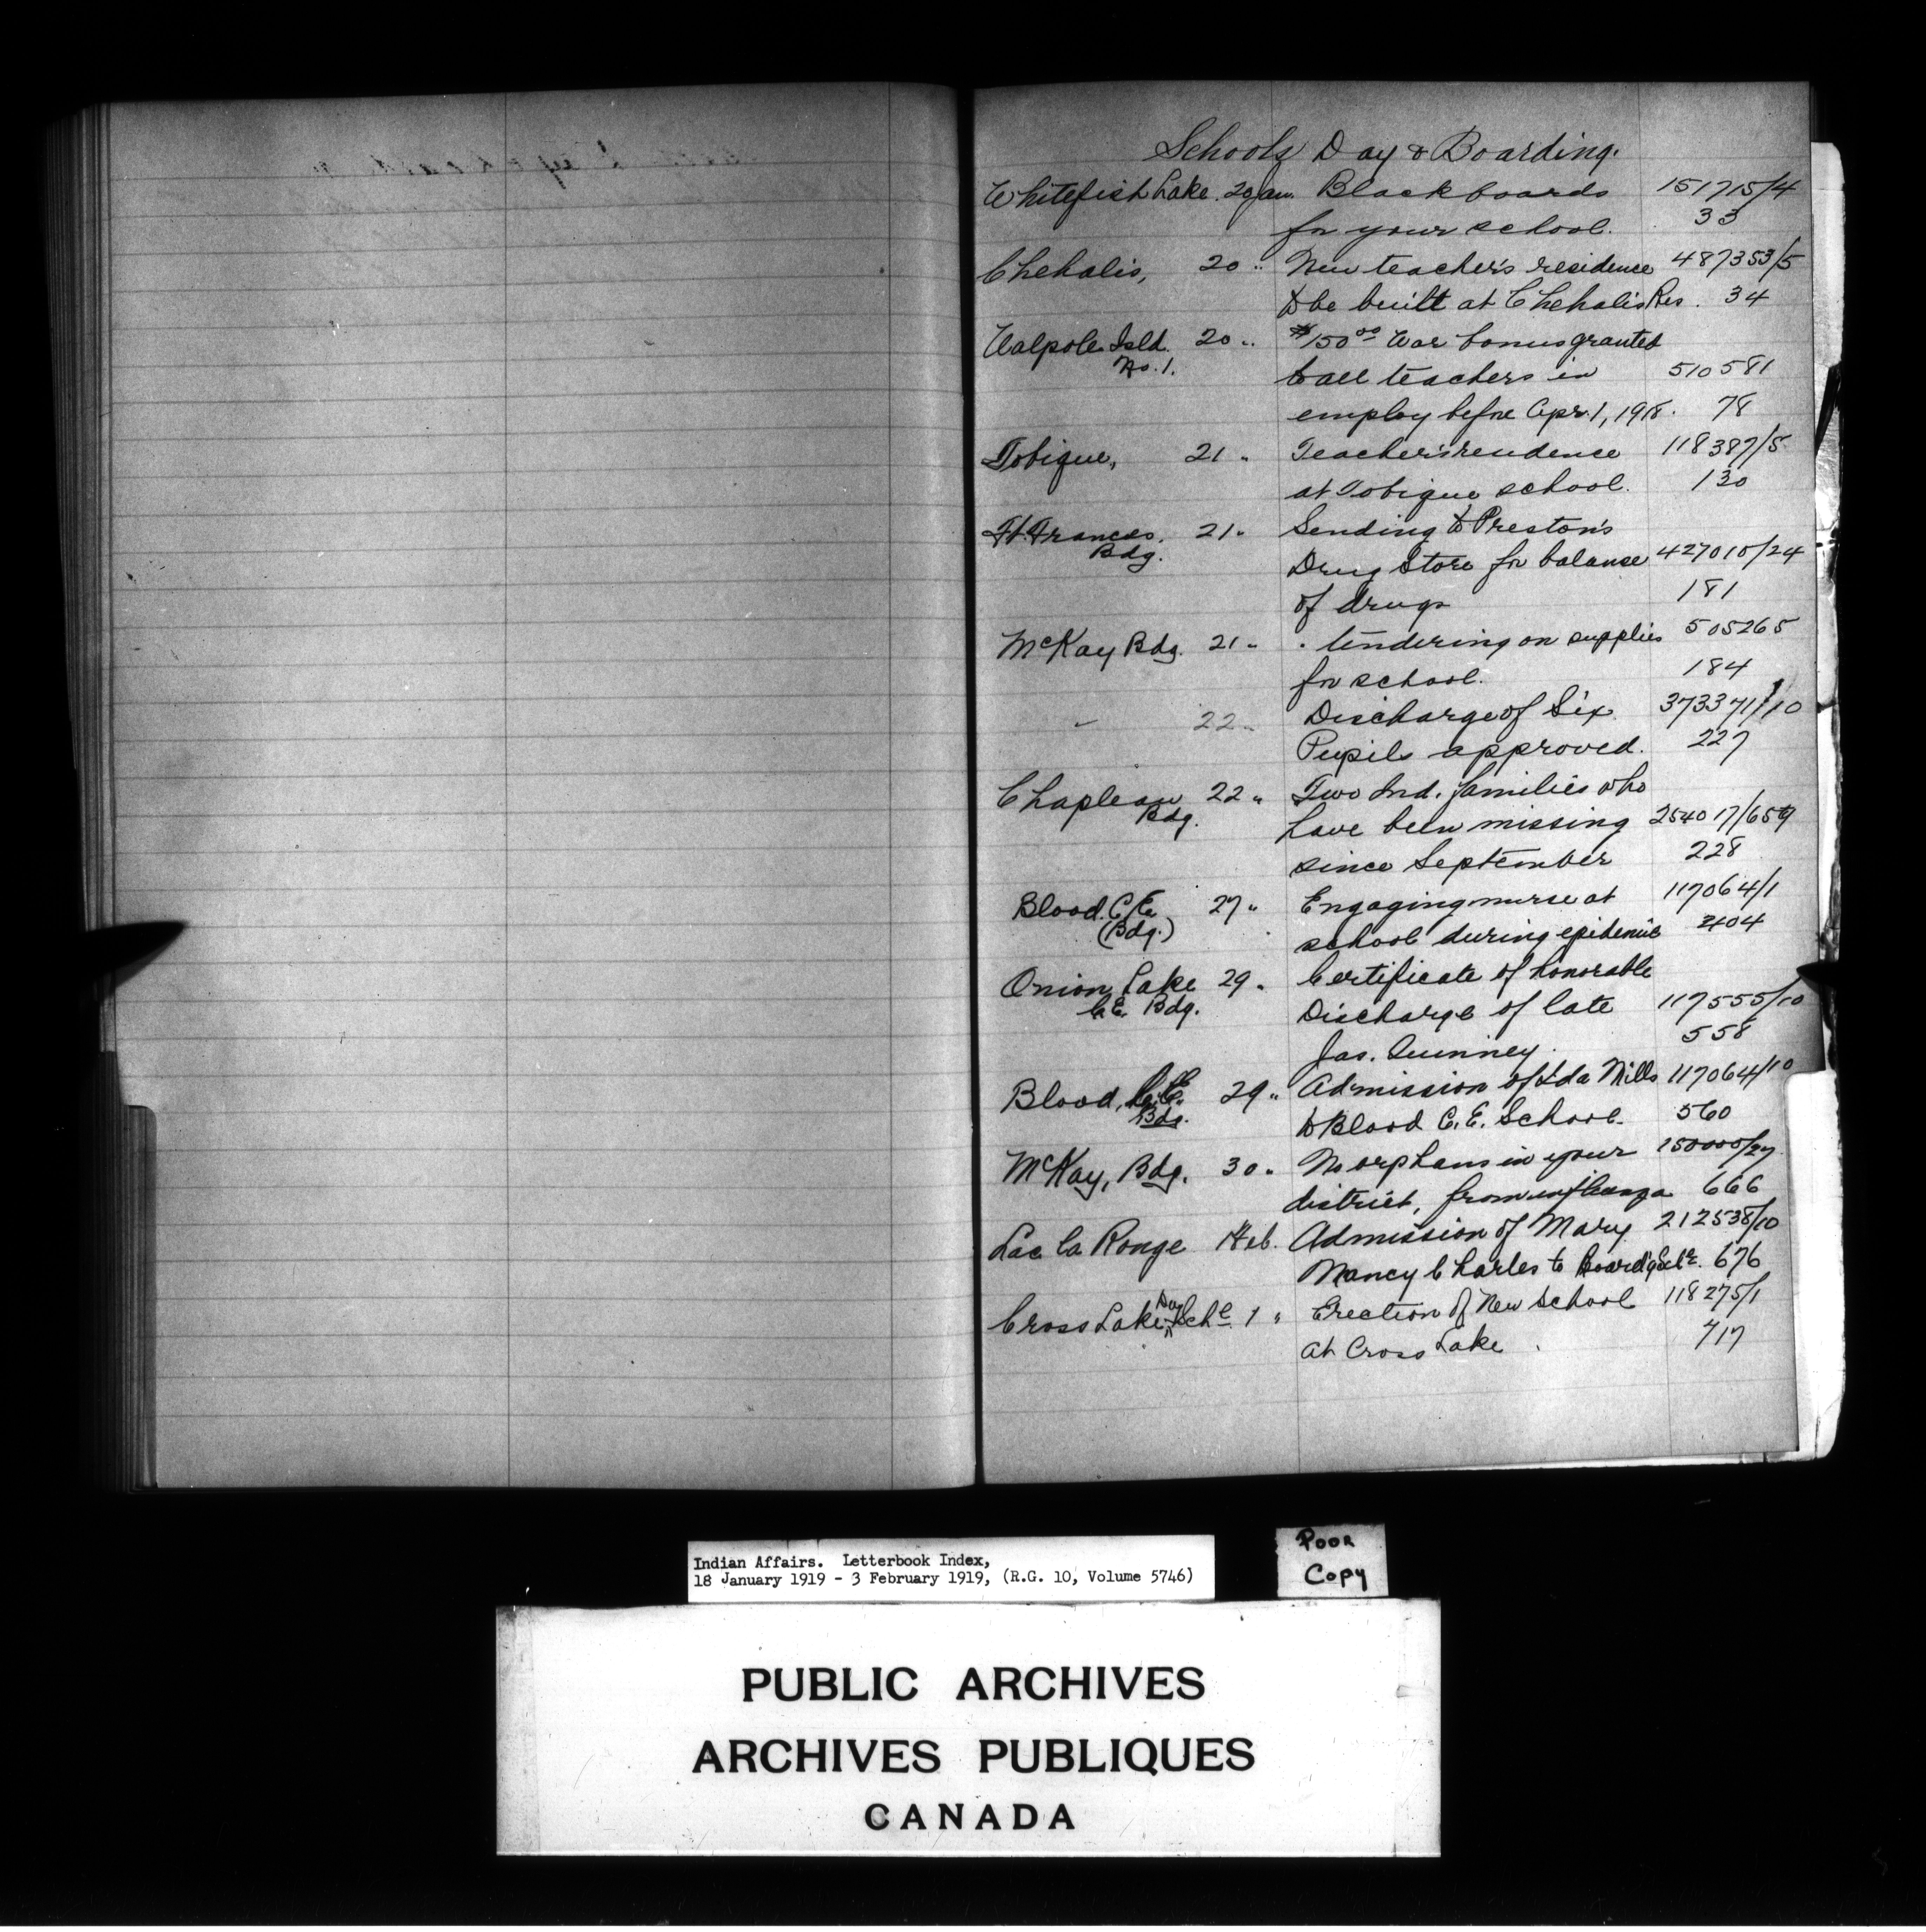 Schools Day & Boarding.
Whitefish Lake. 20 Jan. Blackboards 151715/4
for your school. 33
Chehalis, 20 " New teacher's residence 487353/5
to be built at Chehalis Res. 34
Walpole Isld. 20 " $150.00 War bonus granted
No. 1.
to all teachers in 510581
employ before Apr. 1, 1918. 78
Tobique, 21 " Teacher's residence 118387/5
at Tobique school. 130
Ft. Frances. 21 " Sending to Preston's
Bdg.
Drug Store for balance 427010/24
of drugs 181
McKay Bdg. 21 " . tendering on supplies 505265
for school. 184
" 22 " Discharge of Six 373371/10
Pupils approved. 227
Chapleau 22 " Two Ind. families who
Bdg.
have been missing 254017/659
since September 228
Blood. C.E. 27 " Engaging nurse at 117064/1
(Bdg.)
school during epidemic 404
Onion Lake 29 " Certificate of honorable
C.E. Bdg.
Discharge of late 117555/10
Jas. Quinney. 558
Blood, C.E. 29 " Admission of Ida Mills 117064/10
Bdg.
to Blood C.E. School. 560
McKay, Bdg. 30 " No orphans in your 150000/27
district, from influenza 666
Lac la Ronge 1 Feb. Admission of Mary 212538/10
Nancy Charles to Board'g Schl. 676
Cross Lake Day Schl. 1 " Erection of New School 118275/1
at Cross Lake 717
Indian Affairs. Letterbook Index,
18 January 1919 - 3 February 1919, (R.G. 10, Volume 5746)
Poor
Copy
PUBLIC ARCHIVES
ARCHIVES PUBLIQUES
CANADA